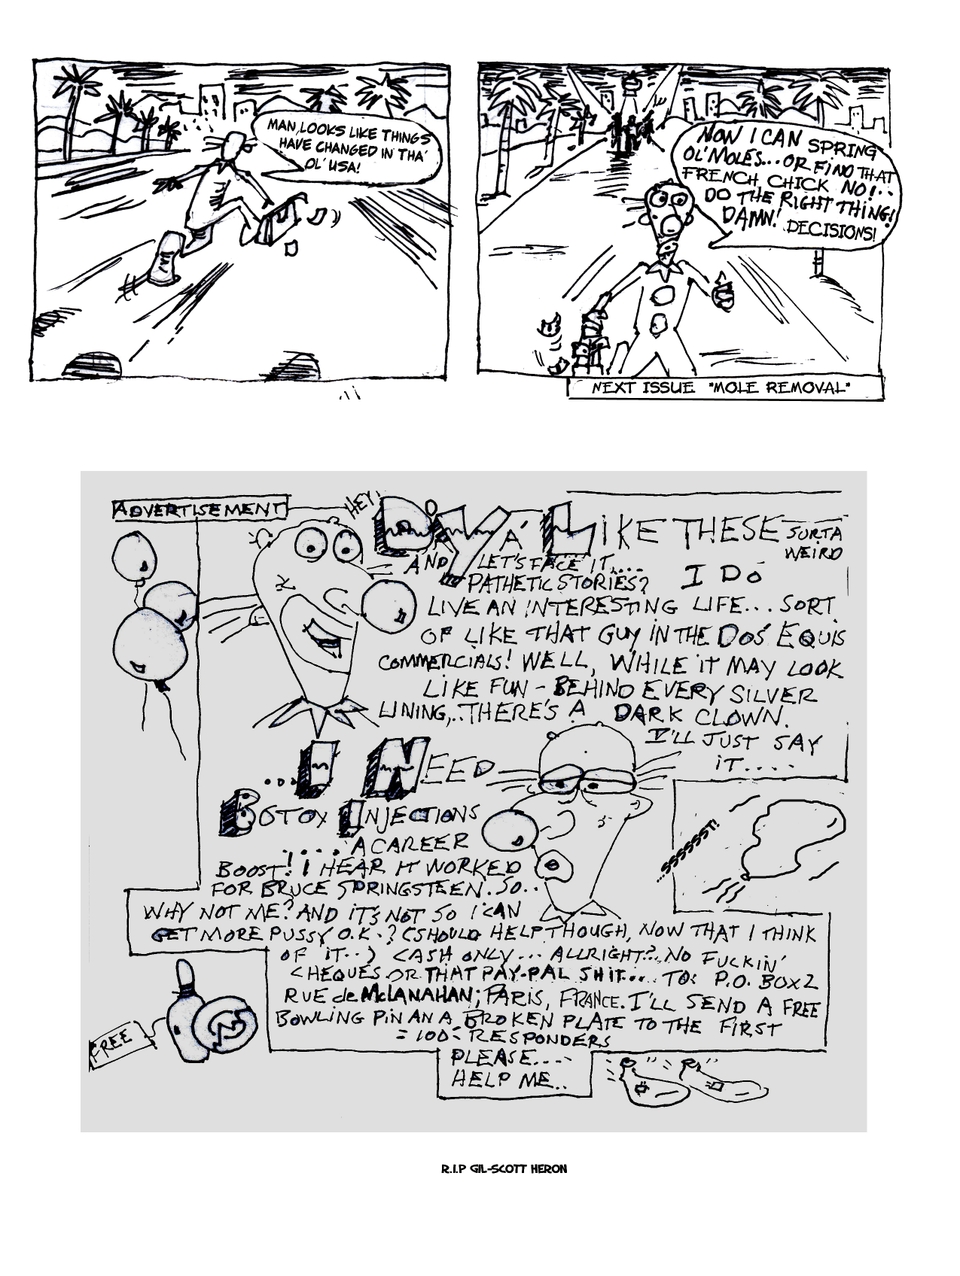 MAN, LOOKS LIKE THINGS
HAVE CHANGED IN THA'
OL' USA!
NOW I CAN SPRING
OL' MOLES... OR FIND THAT
FRENCH CHICK NO!..
DO THE RIGHT THING!
DAMN! DECISIONS!
NEXT ISSUE "MOLE REMOVAL"
ADVERTISEMENT
HEY!
D'YA' LIKE THESE SORTA
WEIRD
AND LET'S FACE IT....
PATHETIC STORIES? I DO
LIVE AN INTERESTING LIFE... SORT
OF LIKE THAT GUY IN THE DOS EQUIS
COMMERCIALS! WELL, WHILE IT MAY LOOK
LIKE FUN - BEHIND EVERY SILVER
LINING... THERE'S A DARK CLOWN.
I'LL JUST SAY
IT....
...I NEED
BOTOX INJECTIONS
.....A CAREER
BOOST! I HEAR IT WORKED
FOR BRUCE SPRINGSTEEN. SO..
WHY NOT ME? AND IT'S NOT SO I CAN
GET MORE PUSSY O.K.? (SHOULD HELP THOUGH, NOW THAT I THINK
OF IT..) CASH ONLY... ALLRIGHT?.. NO FUCKIN'
CHEQUES OR THAT PAY-PAL SHIT... TO: P.O. BOX 2
RUE de McLANAHAN, PARIS, FRANCE. I'LL SEND A FREE
BOWLING PIN AN A BROKEN PLATE TO THE FIRST
= 100 - RESPONDERS
PLEASE....
HELP ME..
SSSSSSST!
FREE
R.I.P GIL-SCOTT HERON